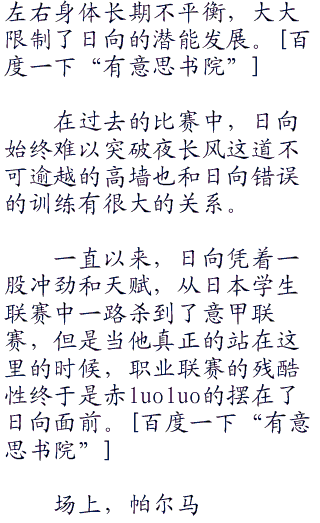 左右身体长期不平衡，大大
限制了日向的潜能发展。[百
度一下“有意思书院”]
在过去的比赛中，日向
始终难以突破夜长风这道不
可逾越的高墙也和日向错误
的训练有很大的关系。
一直以来，日向凭着一
股冲劲和天赋，从日本学生
联赛中一路杀到了意甲联
赛，但是当他真正的站在这
里的时候，职业联赛的残酷
性终于是赤luoluo的摆在了
日向面前。[百度一下“有意
思书院”]
场上，帕尔马